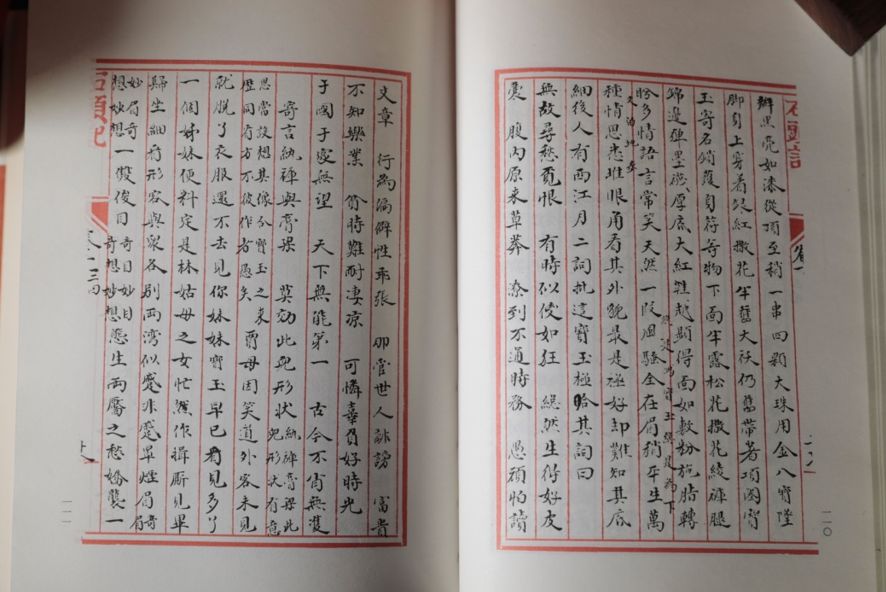 石頭記
卷一
辮黑亮如漆從頂至稍一串四顆大珠用金八寶墜
脚身上穿着銀紅撒花半舊大袄仍舊帶著項圈寶
玉寄名鎖護身符等物下面半露松花撒花綾褲腿
錦邊弹墨襪厚底大紅鞋越顯得面如敷粉施脂轉
盼多情語言常笑天然一段風騷全在眉稍平生萬
種情思悉堆眼角看其外貌最是極好却難知其底
細後人有西江月二詞批這寶玉極恰其詞曰
無故尋愁覓恨 有時似傻如狂 縱然生得好皮
囊 腹內原來草莽 潦到不通時務 愚頑怕讀
二〇
文章 行為偏僻性乖張 那管世人誹謗 富貴
不知樂業 貧時難耐凄凉 可憐辜負好時光
于國于家無望 天下無能第一 古今不肖無雙
寄言紈褲與膏粱 莫効此兒形狀 紈褲膏粱此
兒形狀有意
思當設想其像合寶玉之來
歷同看方不被作者愚矣
賈母因笑道外客未見
就脫了衣服還不去見你妹妹寶玉早已看見多了
一個姊妹便料定是林姑母之女忙作揖厮見畢
歸坐細看形容與衆各別兩湾似蹙非蹙罩煙眉 奇眉
妙眉奇
想妙想
一雙俊目 奇目妙目
奇想妙想
態生兩靨之愁嬌襲一
石頭記
二一